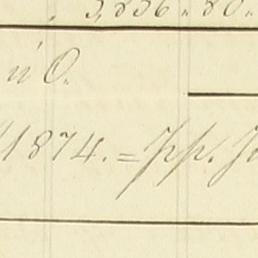 3,836.80.
ú O.
1874. = pp. J